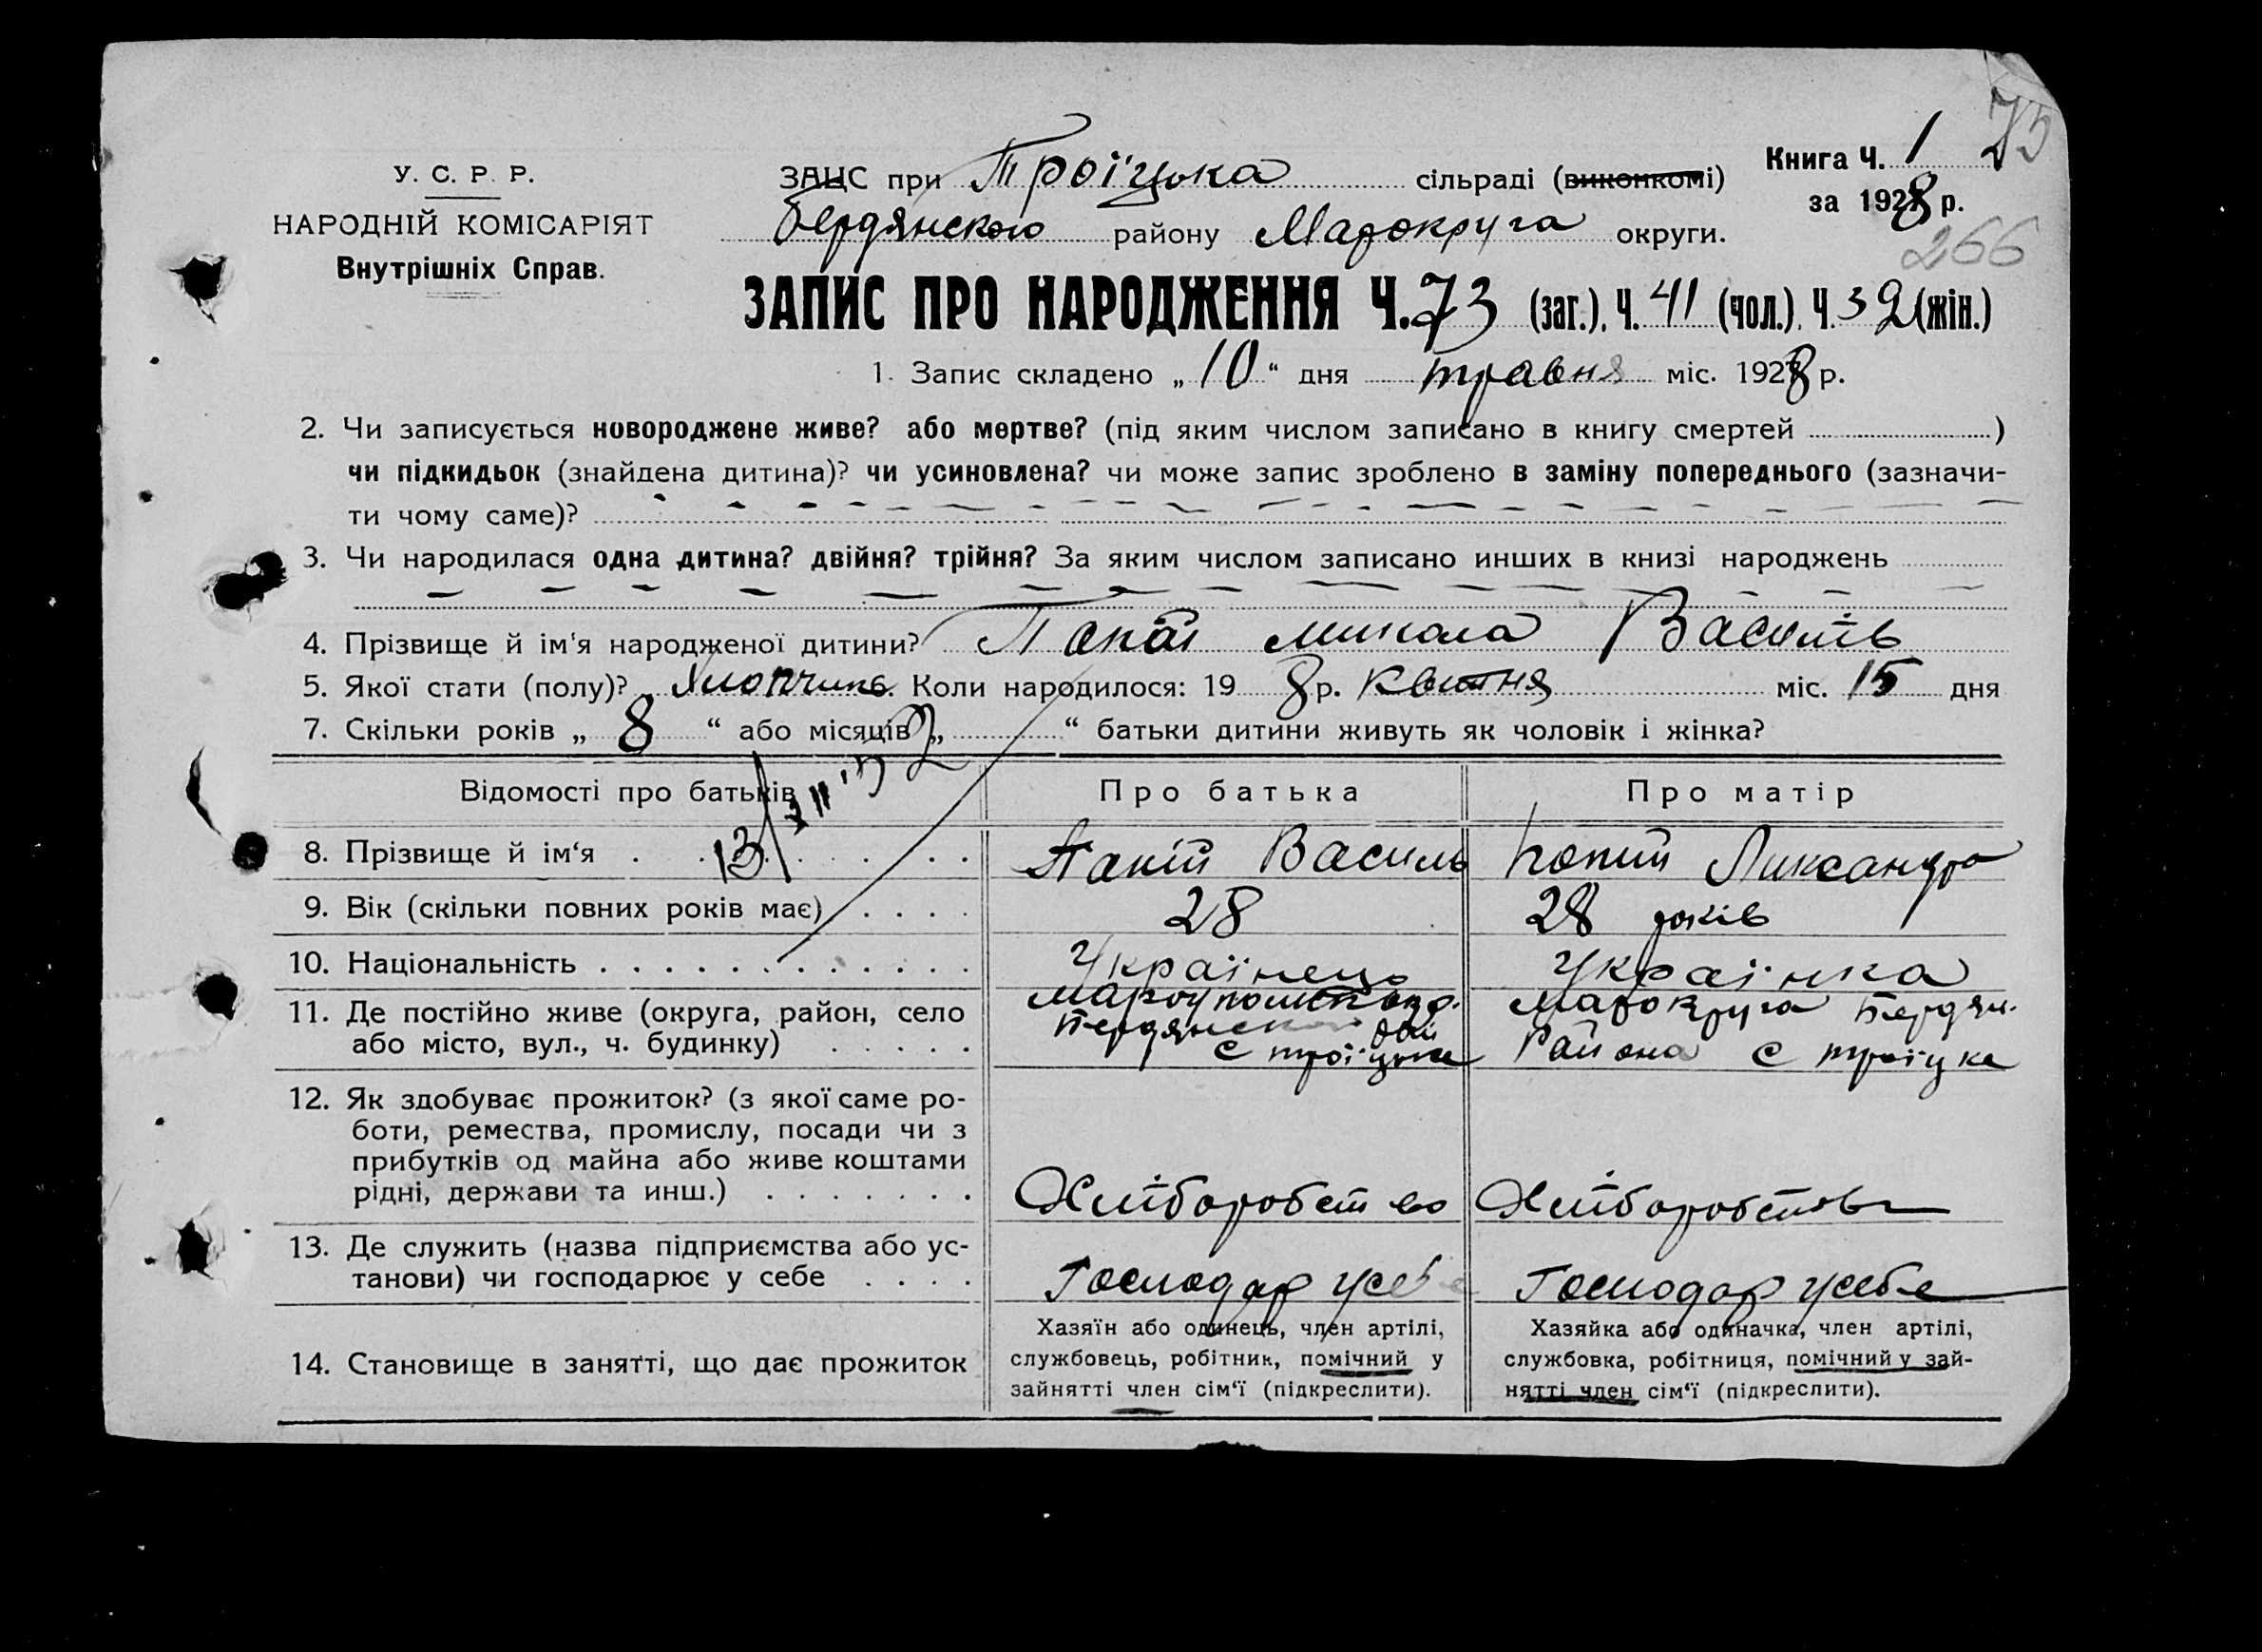 75
У. С. Р. Р.
НАРОДНІЙ КОМІСАРІЯТ
Внутрішніх Справ.
ЗАЦС при Троїцька сільраді (виконкомі)
Бердянского району Марокруга округи.
Книга Ч. 1
за 1928 р.
266
ЗАПИС ПРО НАРОДЖЕННЯ Ч. 73 (заг.). Ч. 41 (чол.). Ч. 32 (жін.)
1. Запис складено „ 10 “ дня травня міс. 1928 р.
2. Чи записується новороджене живе? або мертве? (під яким числом записано в книгу смертей )
чи підкидьок (знайдена дитина)? чи усиновлена? чи може запис зроблено в заміну попереднього (зазначи-
ти чому саме)?
3. Чи народилася одна дитина? двійня? трійня? За яким числом записано инших в книзі народжень
4. Прізвище й ім'я народженої дитини? Микола Василів
5. Якої стати (полу)? Хлопчик. Коли народилося: 19 8 р. Квітня міс. 15 дня
7. Скільки років „ 8 “ або місяців „ “ батьки дитини живуть як чоловік і жінка?
Відомості про батьків
Про батька
Про матір
13/XII
8. Прізвище й ім'я
Василь
Ликсандра
9. Вік (скільки повних років має)
28
28 років
10. Національність
Українець
Українка
11. Де постійно живе (округа, район, село
або місто, вул., ч. будинку)
Бердянского рай
с троїцьке
Марокруга Бердян.
Района с троїцке
12. Як здобуває прожиток? (з якої саме ро-
боти, ремества, промислу, посади чи з
прибутків од майна або живе коштами
рідні, держави та инш.)
Хліборобство
Хліборобство
13. Де служить (назва підприємства або ус-
танови) чи господарює у себе
Господар усебе
Господар усебе
14. Становище в занятті, що дає прожиток
Хазяїн або одинець, член артілі,
службовець, робітник, помічний у
зайнятті член сім'ї (підкреслити).
Хазяйка або одиначка, член артілі,
службовка, робітниця, помічний у зай-
нятті член сім'ї (підкреслити).